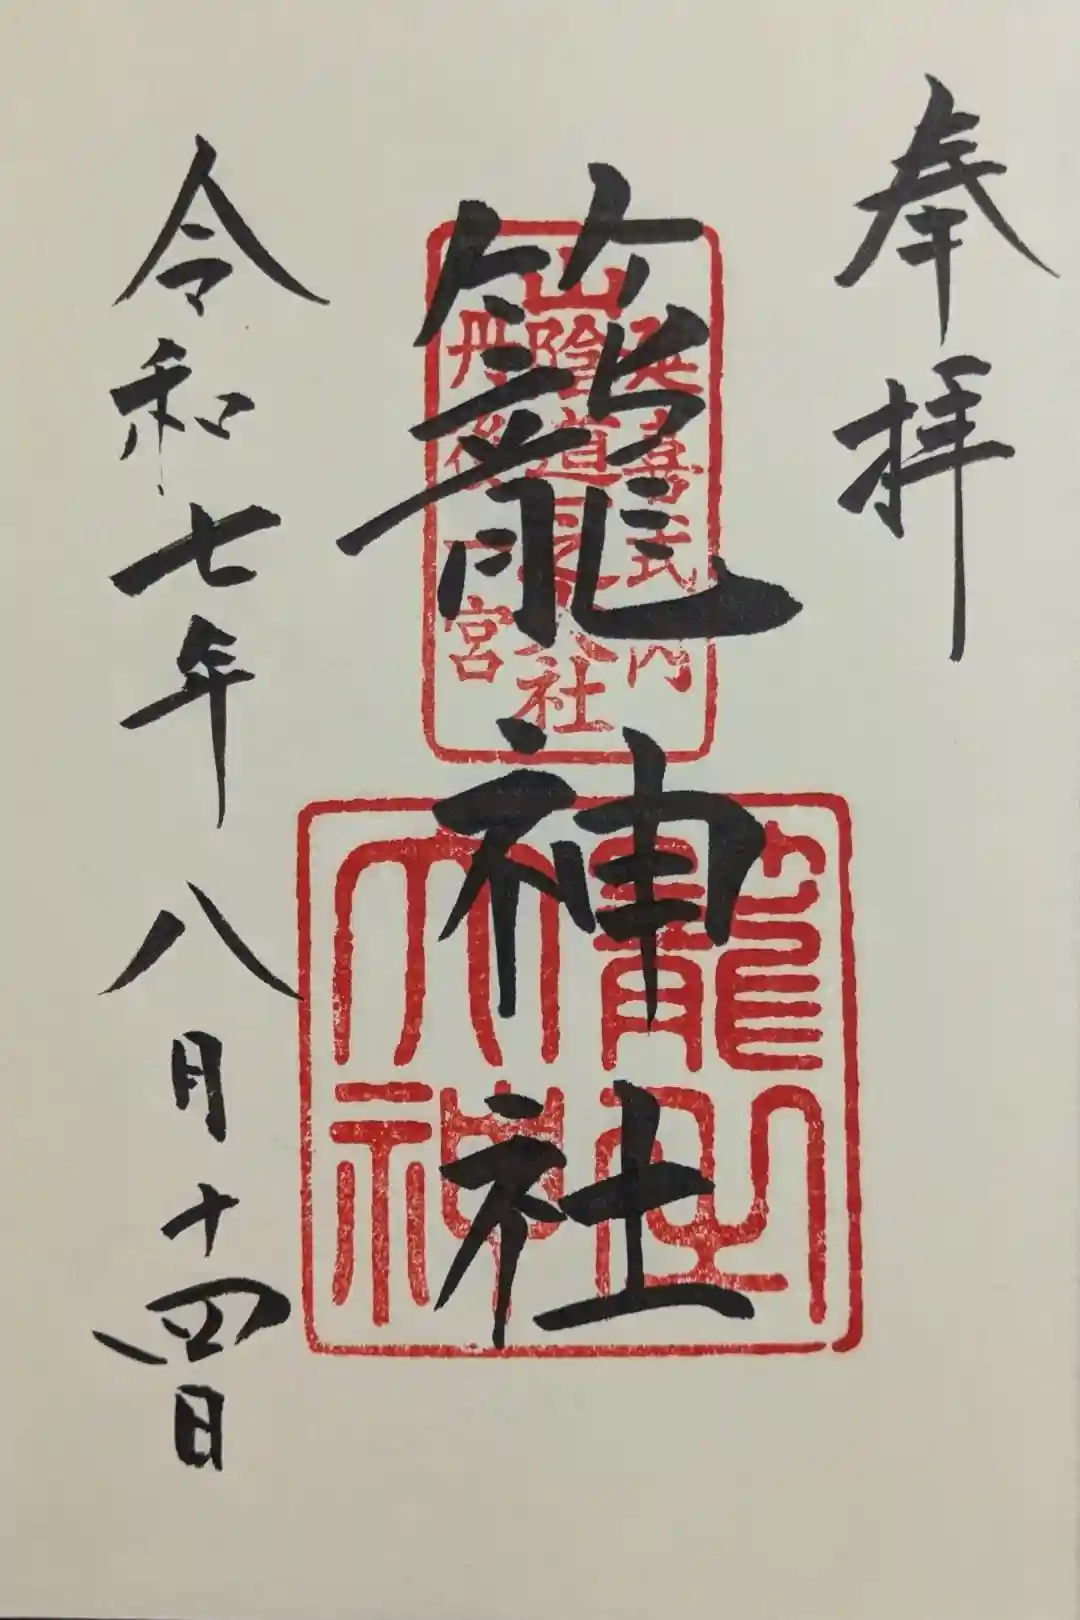 奉拝
延喜式内
山陰道
社
丹後一宮
籠神社
籠之大神
令和七年八月十四日